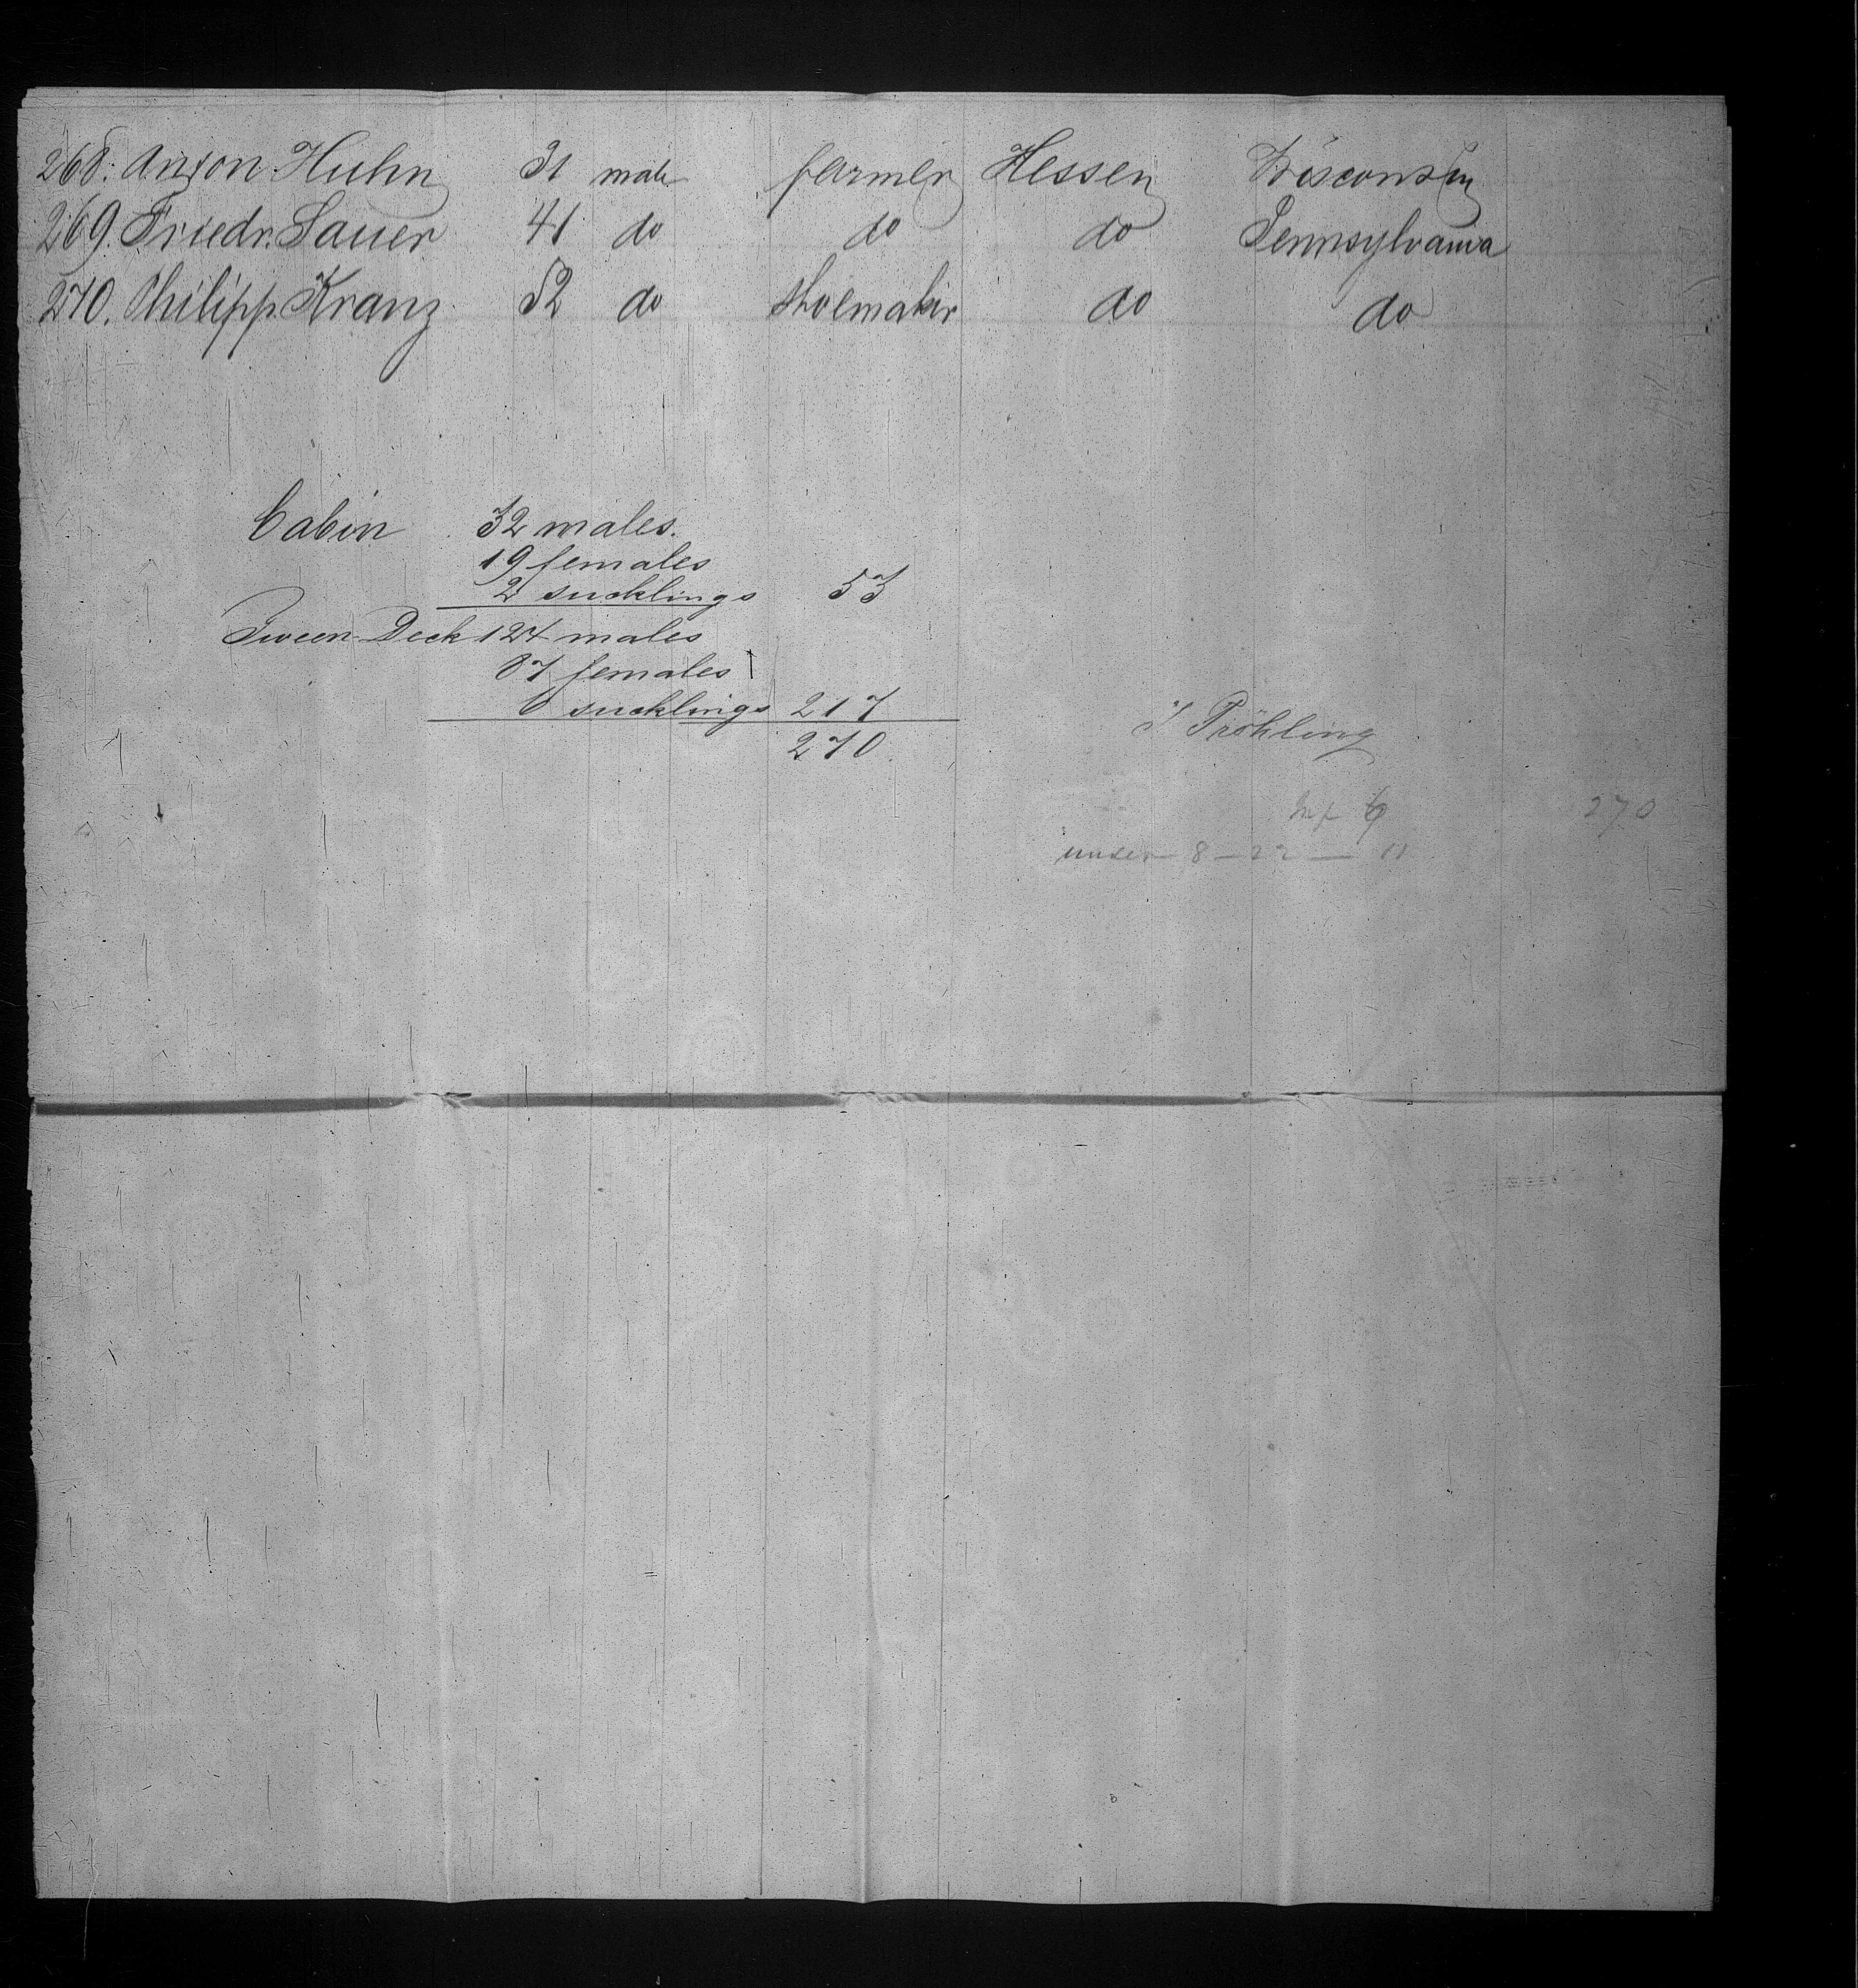 268. Anton Huhn 31 male farmer Hessen Wisconsin
269. Friedr. Sauer 41 do do do Pennsylvania
270. Philipp Kranz 52 do shoemaker do do
Cabin 32 males.
19 females
2 sucklings 53
Tween Deck 124 males
87 females
6 sucklings 217
270.
Pröhling
270
under 8 — 22 — 11